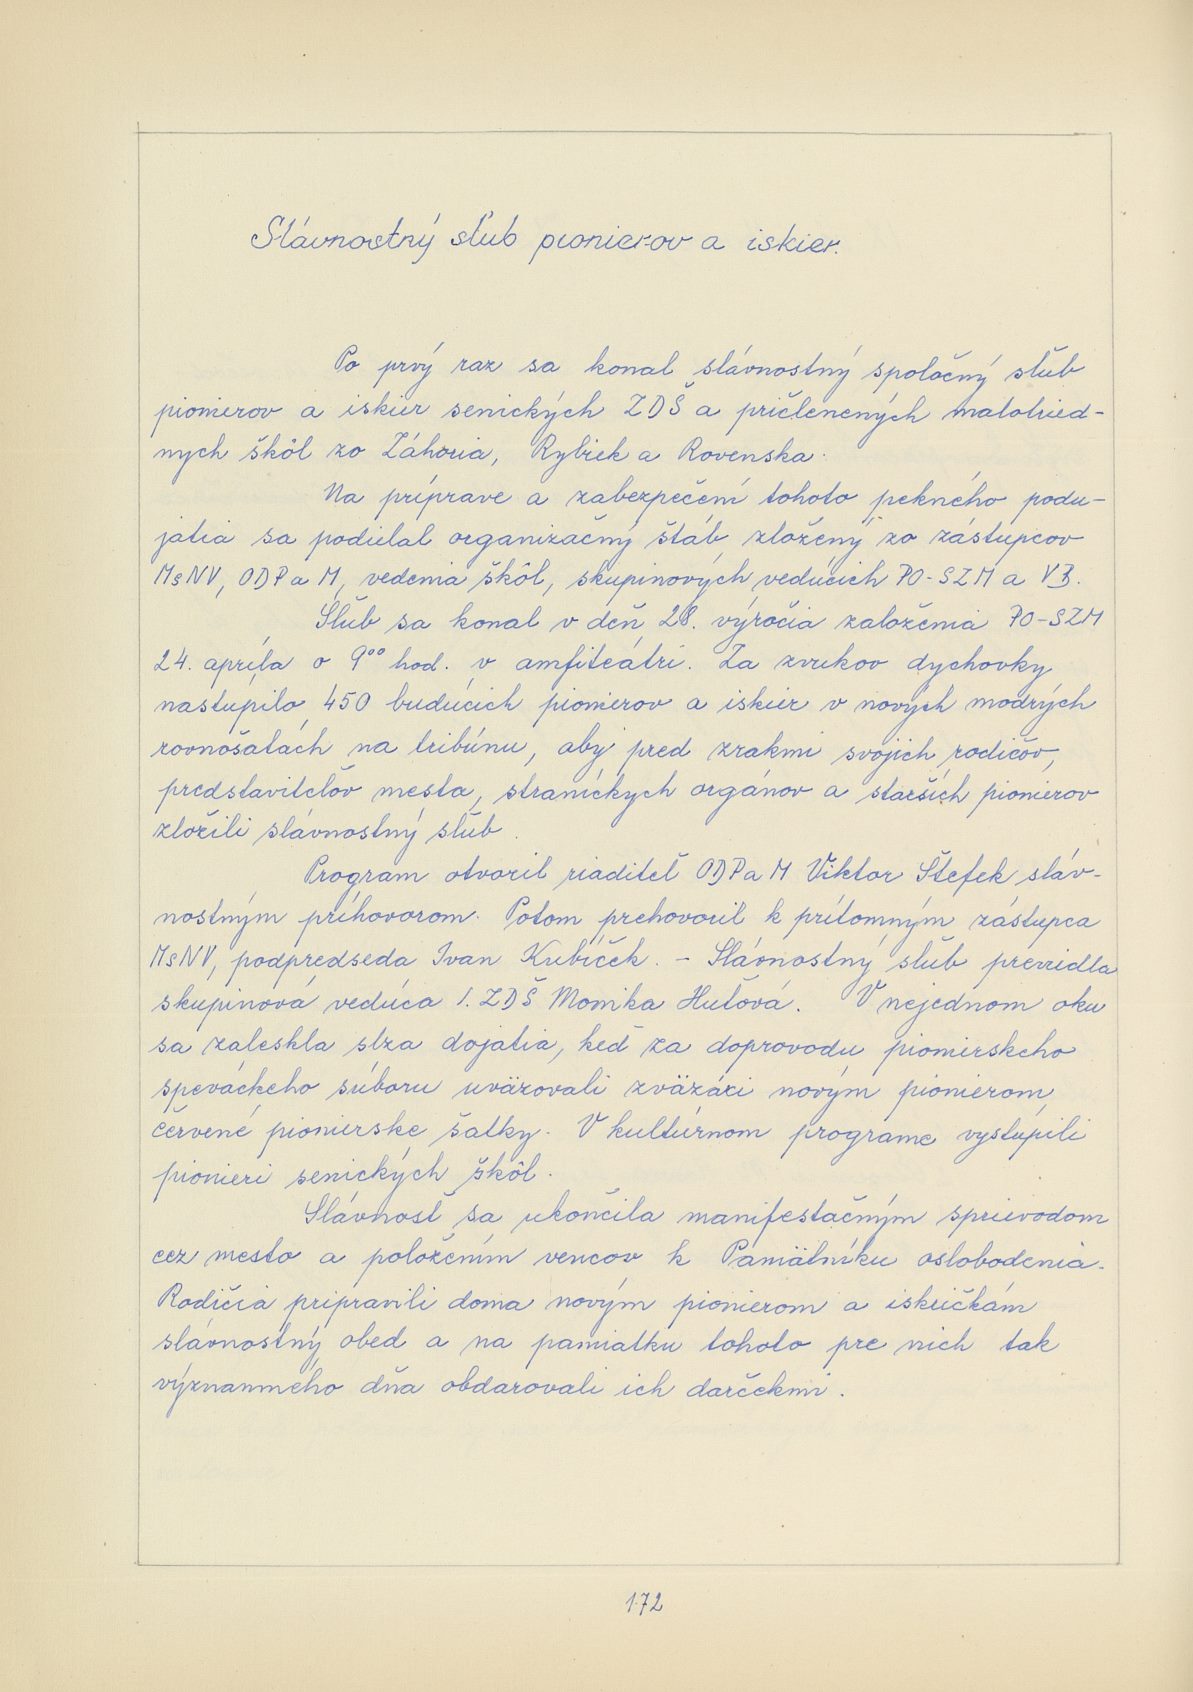 Slávnostný sľub pionierov a iskier.
Po prvý raz sa konal slávnostný spoločný sľub
pionierov a iskier senických ZDŠ a pričlenených malotried-
nych škôl zo Záhoria, Rybiek a Rovenska.
Na príprave a zabezpečení tohoto pekného podu-
jatia sa podielal organizačný štáb zložený zo zástupcov
MsNV, ODP a M, vedenia škôl, skupinových vedúcich PO-SZM a VB.
Sľub sa konal v deň 28. výročia založenia PO-SZM
24. apríla o 9⁰⁰ hod. v amfiteátri. Za zvukov dychovky
nastúpilo 450 budúcich pionierov a iskier v nových modrých
rovnošatách na tribúnu, aby pred zrakmi svojich rodičov,
predstaviteľov mesta, straníckych orgánov a starších pionierov
zložili slávnostný sľub.
Program otvoril riaditeľ ODP a M Viktor Štefek sláv-
nostným príhovorom. Potom prehovoril k prítomným zástupca
MsNV, podpredseda Ivan Kubíček. - Slávnostný sľub previedla
skupinová vedúca I. ZDŠ Monika Huťová. V nejednom oku
sa zaleskla slza dojatia, keď za doprovodu pionierskeho
speváckeho súboru uväzovali zväzáci novým pionierom
červené pionierske šatky. V kultúrnom programe vystúpili
pionieri senických škôl.
Slávnosť sa ukončila manifestačným sprievodom
cez mesto a položením vencov k Pamätníku oslobodenia.
Rodičia pripravili doma novým pionierom a iskričkám
slávnostný obed a na pamiatku tohoto pre nich tak
významného dňa obdarovali ich darčekmi.
172